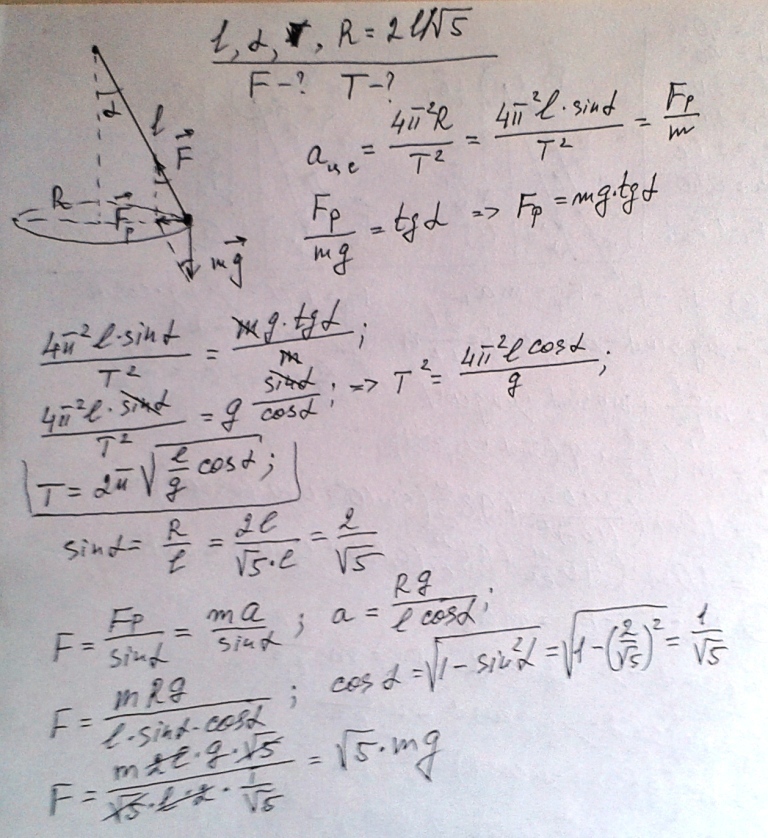 l, α, , R = 2l/√5
F - ? T - ?
α
l
F⃗
R
F⃗р
mg⃗
aцс = 4π²R/T² = 4π²l·sinα/T² = Fр/m
Fр/mg = tgα => Fр = mg·tgα
4π²l·sinα/T² = mg·tgα/m;
4π²l·sinα/T² = g sinα/cosα; => T² = 4π²l cosα/g;
T = 2π√(l/g cosα);
sinα = R/l = 2l/√5·l = 2/√5
F = Fр/sinα = ma/sinα; a = Rg/l cosα;
F = mRg/l·sinα·cosα; cosα = √(1 - sin²α) = √(1 - (2/√5)²) = 1/√5
F = m2l·g·√5/√5·l·2·1/√5 = √5·mg